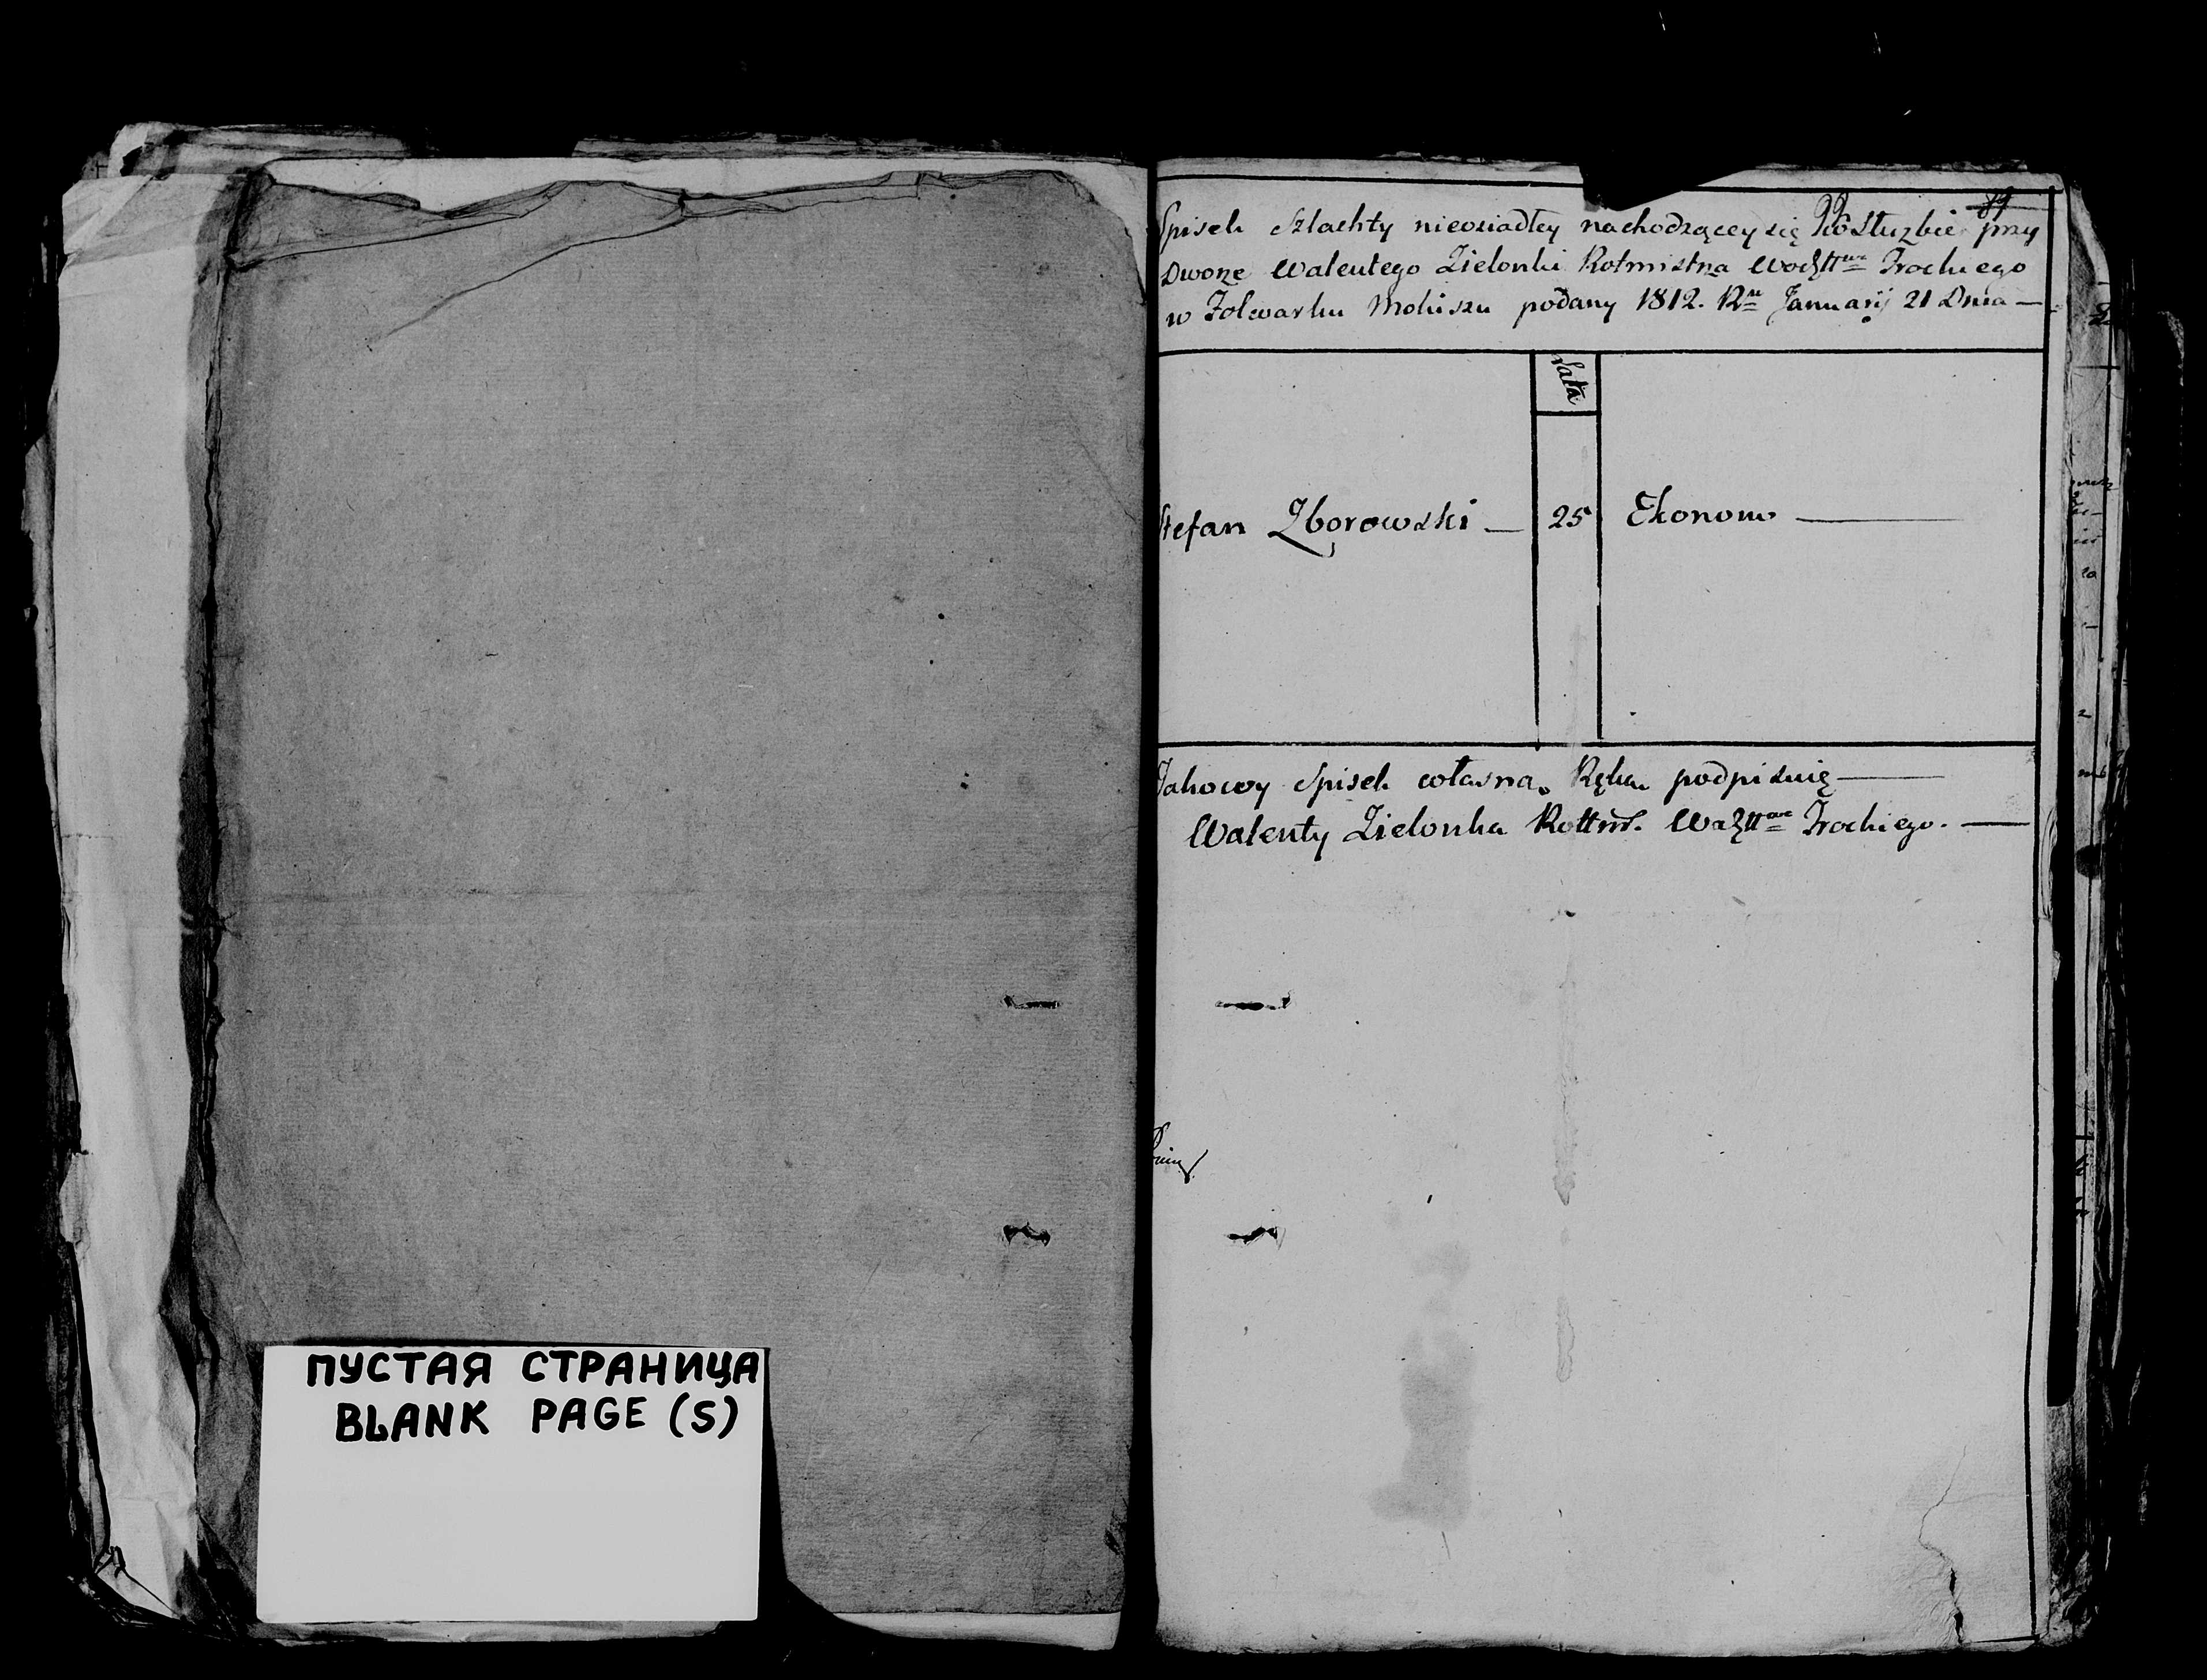 ПУСТАЯ СТРАНИЦА
BLANK PAGE (S)
89
Spisek Szlachty nieosiadłey nachodzącey się w Służbie przy
Dworze Walentego Zielonki Rotmistrza Trockiego
w Folwarku podany 1812. Rᵘ Januarij 21 Dnia —
Lata
Stefan Zborowski — 25 Ekonom —
Takowy Spisek własną Ręką podpisuię —
Walenty Zielonka Rottm. Trockiego. —